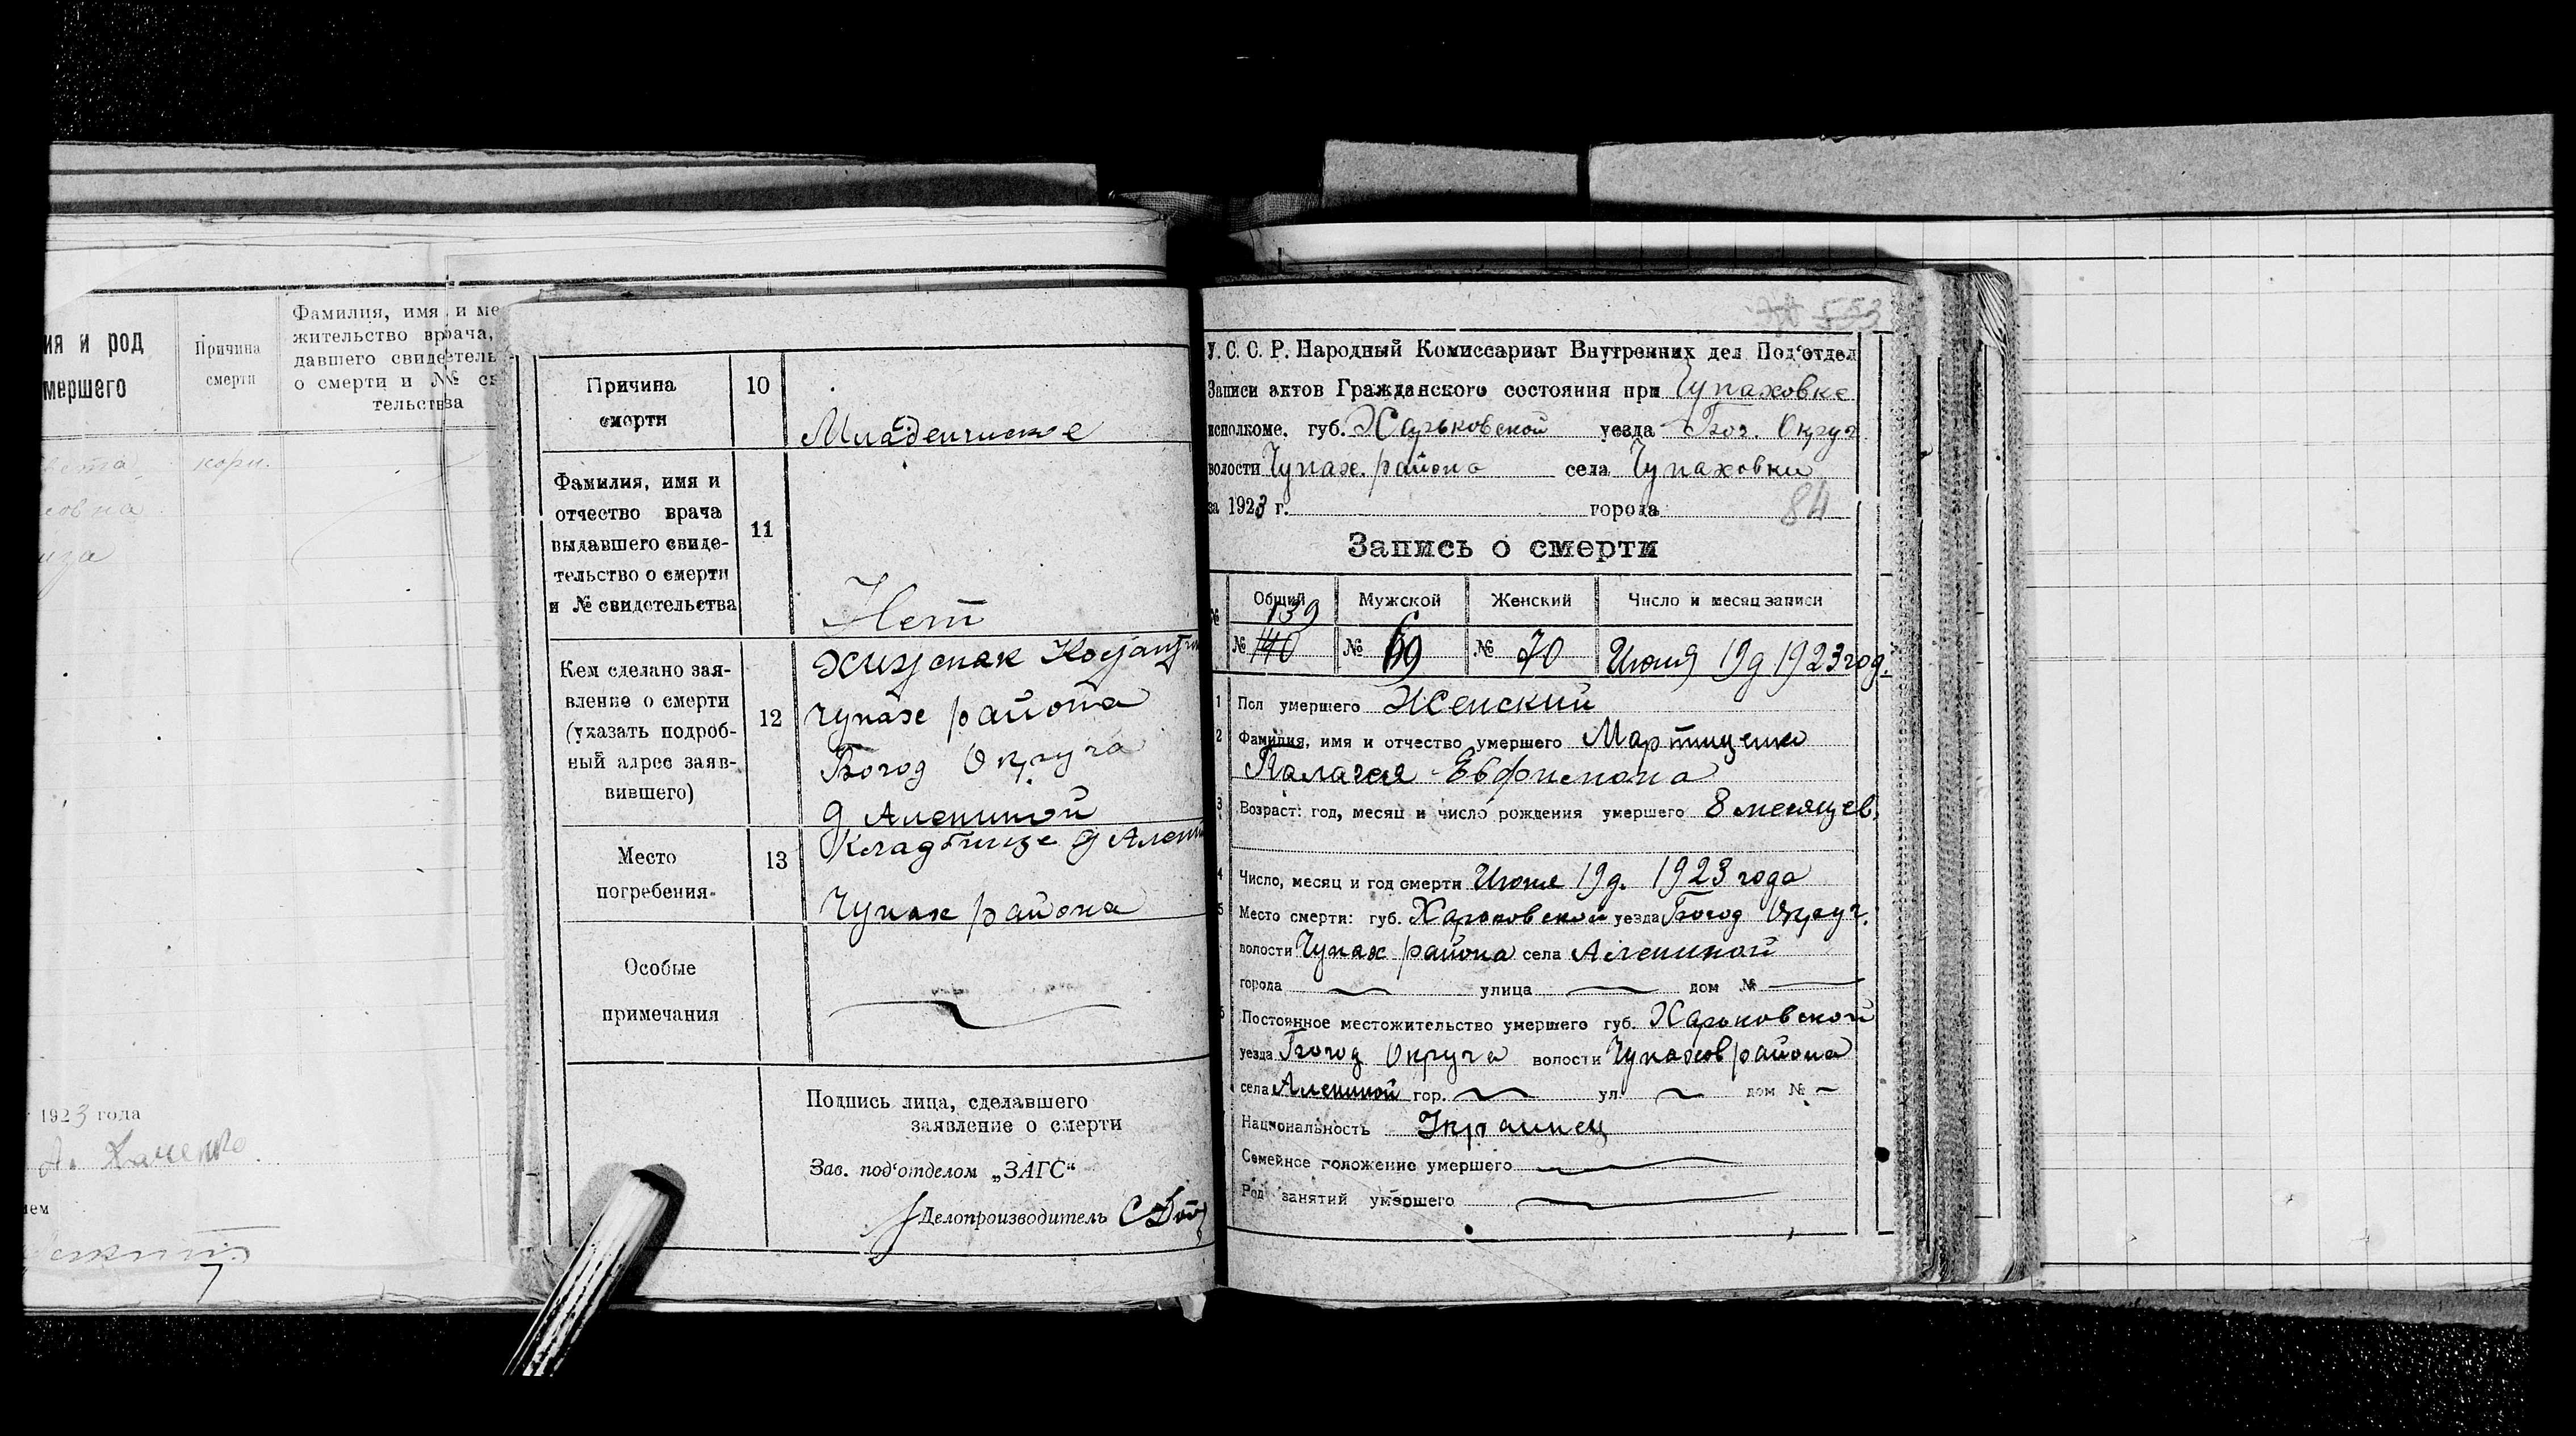 ия и род
мершего
Причина
смерти
Фамилия, имя и ме
жительство врача,
давшего свидетель
о смерти и №
тельства
корп.
1923 года
Причина
смерти
10
Младенческое
Фамилия, имя и
отчество врача
выдавшего свиде-
тельство о смерти
и № свидетельства
11
Нет
Кем сделано зая-
вление о смерти
(указать подроб-
ный адрес заяв-
вившего)
12
Чупах района
Богод Округа
д Алениной
Место
погребения
13
Кладбище дАлен
Чупах района
Особые
примечания
Подпись лица, сделавшего
заявление о смерти
Зав. под'отделом „ЗАГС“
Делопроизводитель
У. С. С. Р. Народный Комиссариат Внутренних дел Под'отдел
Записи актов Гражданского состояния при Чупаховке
исполкоме. губ. Харьковской уезда Бог. Округ
волости Чупах. района села Чупаховки
за 1923 г. города 84
Запись о смерти
№ Общий Мужской Женский Число и месяц записи
139
№ 140 № 69 № 70 Июня 19д 1923 год.
1 Пол умершего Женский
2 Фамилия, имя и отчество умершего Мартиценко
Палагея
3 Возраст: год, месяц и число рождения умершего 8 месяцев
4 Число, месяц и год смерти Июня 19д. 1923 года
5 Место смерти: губ. Харьковской уезда Богод Округ.
волости Чупах района села Алениной
города улица дом №
Постоянное местожительство умершего губ. Харьковской
уезда Богод Округа волости Чупахов района
села Алениной гор. ул. дом №
Национальность Украинец
Семейное положение умершего
Род занятий умершего